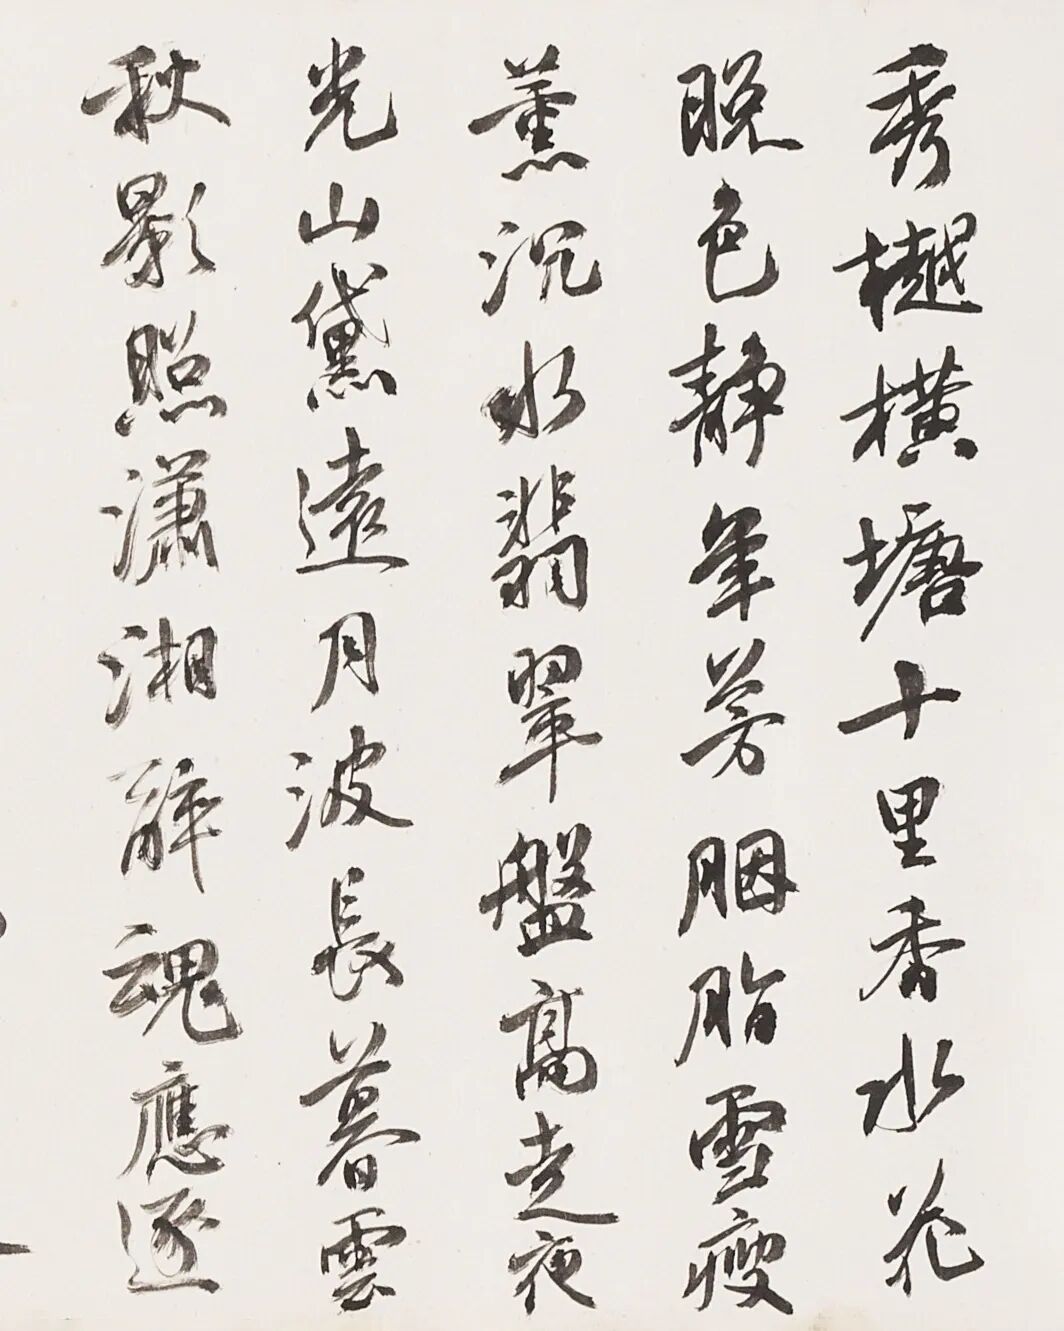 秀樾橫塘十里香水花
晚色靜年芳胭脂雪瘦
薰沉水翡翠盤高走夜
光山黛遠月波長暮雲
秋影照瀟湘醉魂應逐